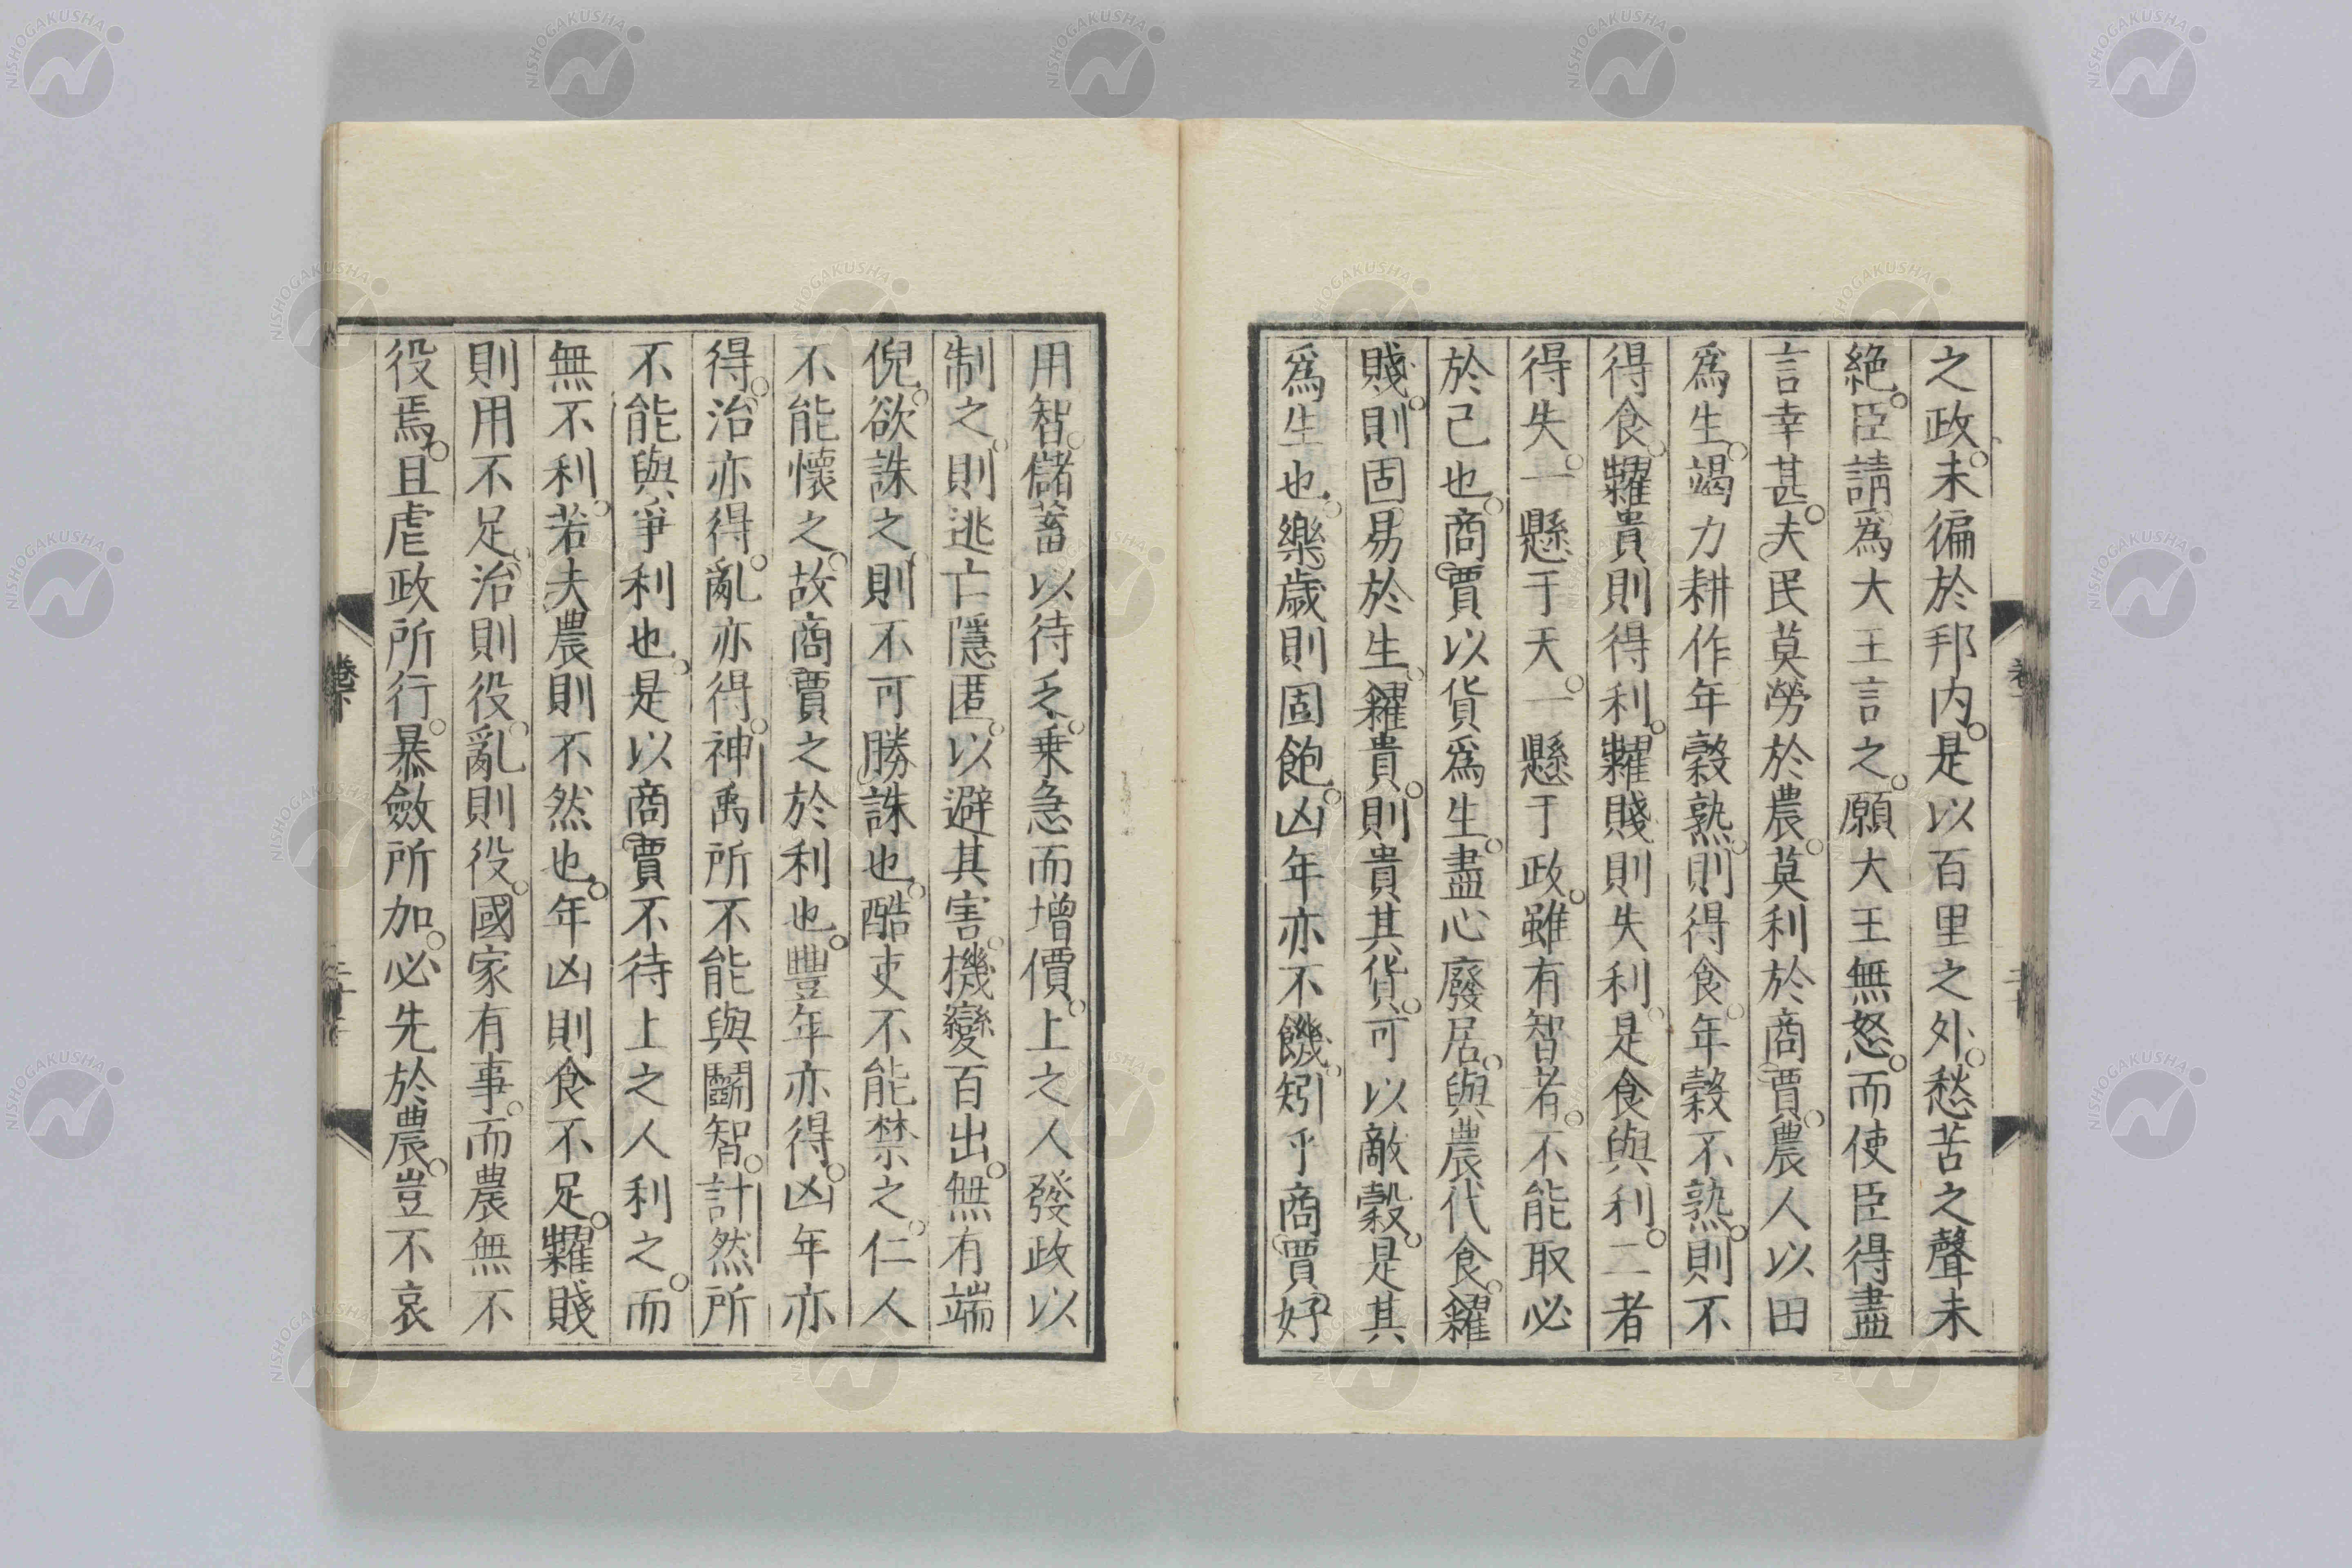 之政。未徧於邦内。是以百里之外。愁苦之聲未
絶。臣請爲大王言之。願大王無怒。而使臣得盡
言幸甚。夫民莫勞於農。莫利於商賈。農人以田
爲生。竭力耕作年穀熟。則得食。年穀不熟。則不
得食。糶貴則得利。糶賤則失利。是食與利。二者
得失。一懸于天。一懸于政。雖有智者。不能取必
於己也。商賈以貨爲生。盡心廢居。與農代食。糴
賤。則固易於生。糴貴。則貴其貨。可以敵穀。是其
爲生也。樂歳則固飽。凶年亦不饑。矧乎商賈好
用智。儲蓄以待乏。乗急而增價。上之人發政以
制之。則逃亡隱匿。以避其害。機變百出。無有端
倪。欲誅之。則不可勝誅也。酷吏不能禁之。仁人
不能懷之。故商賈之於利也。豐年亦得。凶年亦
得。治亦得。亂亦得。神禹所不能與鬭智。計然所
不能與爭利也。是以商賈不待上之人利之。而
無不利。若夫農則不然也。年凶則食不足。糶賤
則用不足。治則役。亂則役。國家有事。而農無不
役焉。且虐政所行。暴斂所加。必先於農。豈不哀
卷下